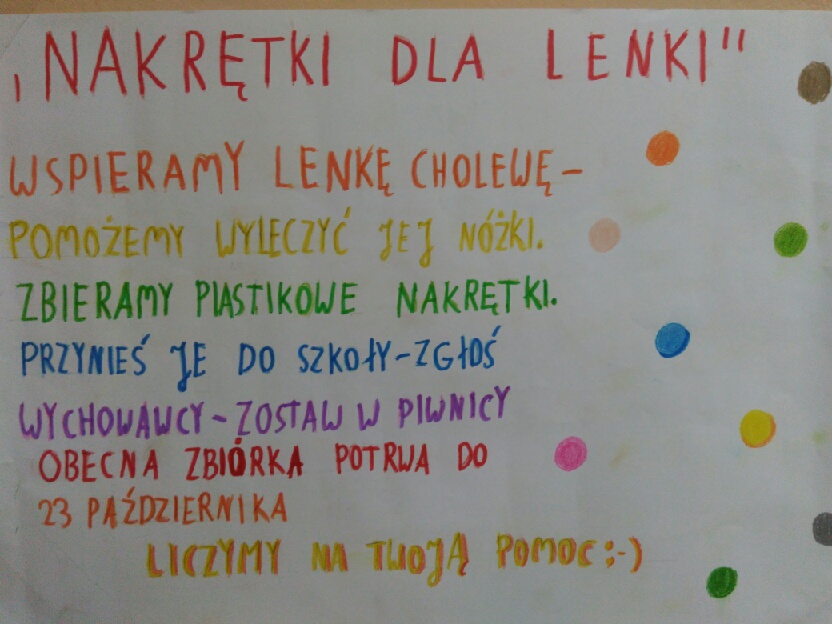 ,NAKRĘTKI DLA LENKI"
WSPIERAMY LENKĘ CHOLEWĘ-
POMOŻEMY WYLECZYĆ JEJ NÓŻKI.
ZBIERAMY PLASTIKOWE NAKRĘTKI.
PRZYNIEŚ JE DO SZKOŁY-ZGŁOŚ
WYCHOWAWCY-ZOSTAW W PIWNICY
OBECNA ZBIÓRKA POTRWA DO
23 PAŹDZIERNIKA
LICZYMY NA TWOJĄ POMOC :-)